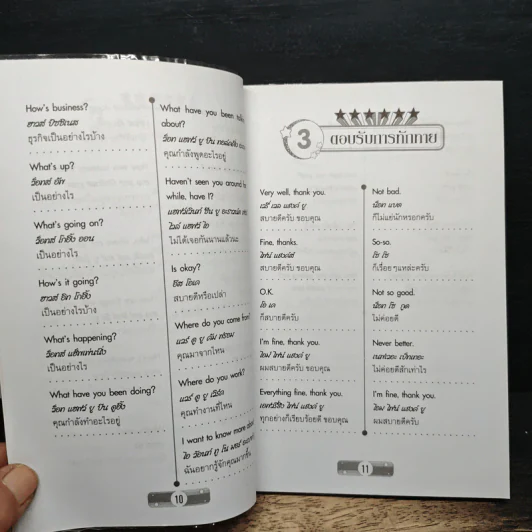 How's business?
ฮาวส์ บิซซิเนส
ธุรกิจเป็นอย่างไรบ้าง
What's up?
ว็อทส์ อัพ
เป็นอย่างไร
What's going on?
ว็อทส์ โกอิ้ง ออน
เป็นอย่างไร
How's it going?
ฮาวส์ อิท โกอิ้ง
เป็นอย่างไรบ้าง
What's happening?
ว็อทส์ แฮ็พเพ่นนิ่ง
เป็นอย่างไร
What have you been doing?
ว็อท แฮฟว์ ยู บีน ดูอิ้ง
คุณกำลังทำอะไรอยู่
What have you been
about?
ว็อท แฮฟว์ ยู บีน
คุณกำลังพูดอะไรอยู่
Haven't seen you around for
while, have I?
แฮฟเว่นท์ ซีน ยู
ไวล์ แฮฟว์ ไอ
ไม่ได้เจอกันนานแล้วนะ
Is okay?
อีส โอเค
สบายดีหรือเปล่า
Where do you come from?
แวร์ ดู ยู คัม ฟรอม
คุณมาจากไหน
Where do you work?
แวร์ ดู ยู เวิร์ค
คุณทำงานที่ไหน
I want to know more
ไอ ว้อนท์ ทู โน มอร์
ฉันอยากรู้จักคุณมากขึ้น
10
3 ตอบรับการทักทาย
Very well, thank you.
เวรี่ เวล แธงค์ ยู
สบายดีครับ ขอบคุณ
Fine, thanks.
ไฟน์ แธงค์ส
สบายดีครับ ขอบคุณ
O.K.
โอ เค
ก็สบายดีครับ
I'm fine, thank you.
ไอม์ ไฟน์ แธงค์ ยู
ผมสบายดีครับ ขอบคุณ
Everything fine, thank you.
เอฟรีธิง ไฟน์ แธงค์ ยู
ทุกอย่างก็เรียบร้อยดี ขอบคุณ
Not bad.
น็อท แบด
ก็ไม่แย่นักหรอกครับ
So-so.
โซ โซ
ก็เรื่อย ๆ แหละครับ
Not so good.
น็อท โซ กูด
ไม่ค่อยดี
Never better.
เนฟเวอะ เบ็ทเทอะ
ไม่ค่อยดีสักเท่าไร
I'm fine, thank you.
ไอม์ ไฟน์ แธงค์ ยู
ผมสบายดีครับ
11